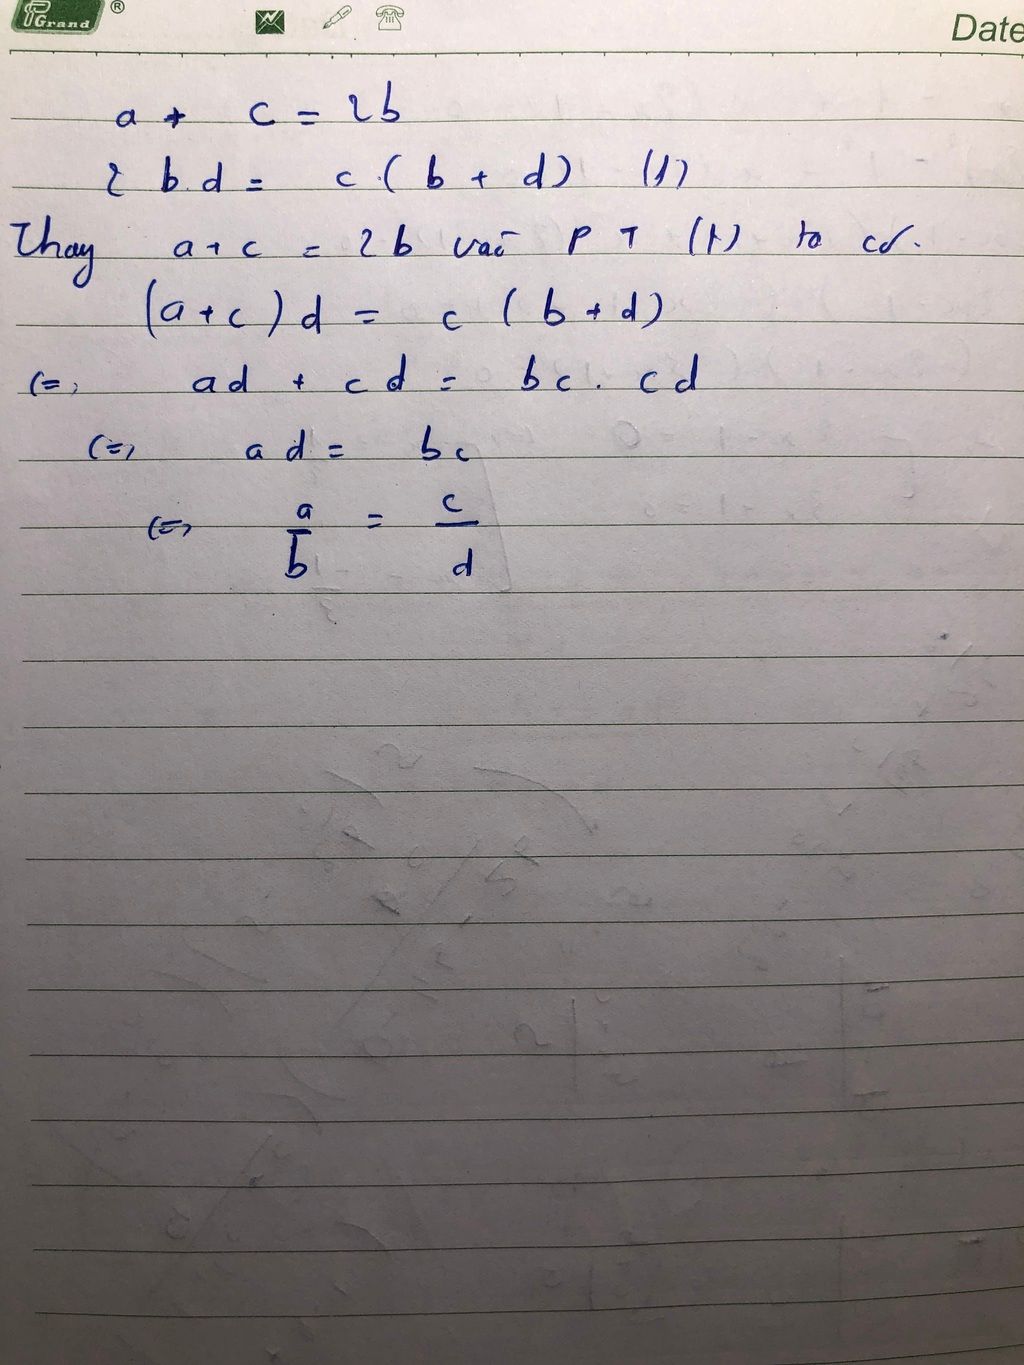 Grand ®
Date
a + c = 2b
2 b.d = c.( b + d) (1)
Thay a + c = 2b vào PT (1) ta có.
(a + c) d = c ( b + d)
(=) ad + cd = bc . cd
(=) ad = bc
(=) a/b = c/d